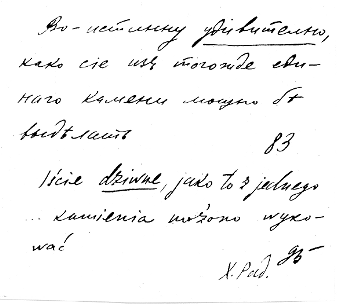 Во-истинну удивително,
како сіе изъ тогожде еди-
наго камени мощно бѣ
выдѣлать
83
Iście dziwne, jako to z jednego
... kamienia możono wyko-
wać
95
X. Pad.